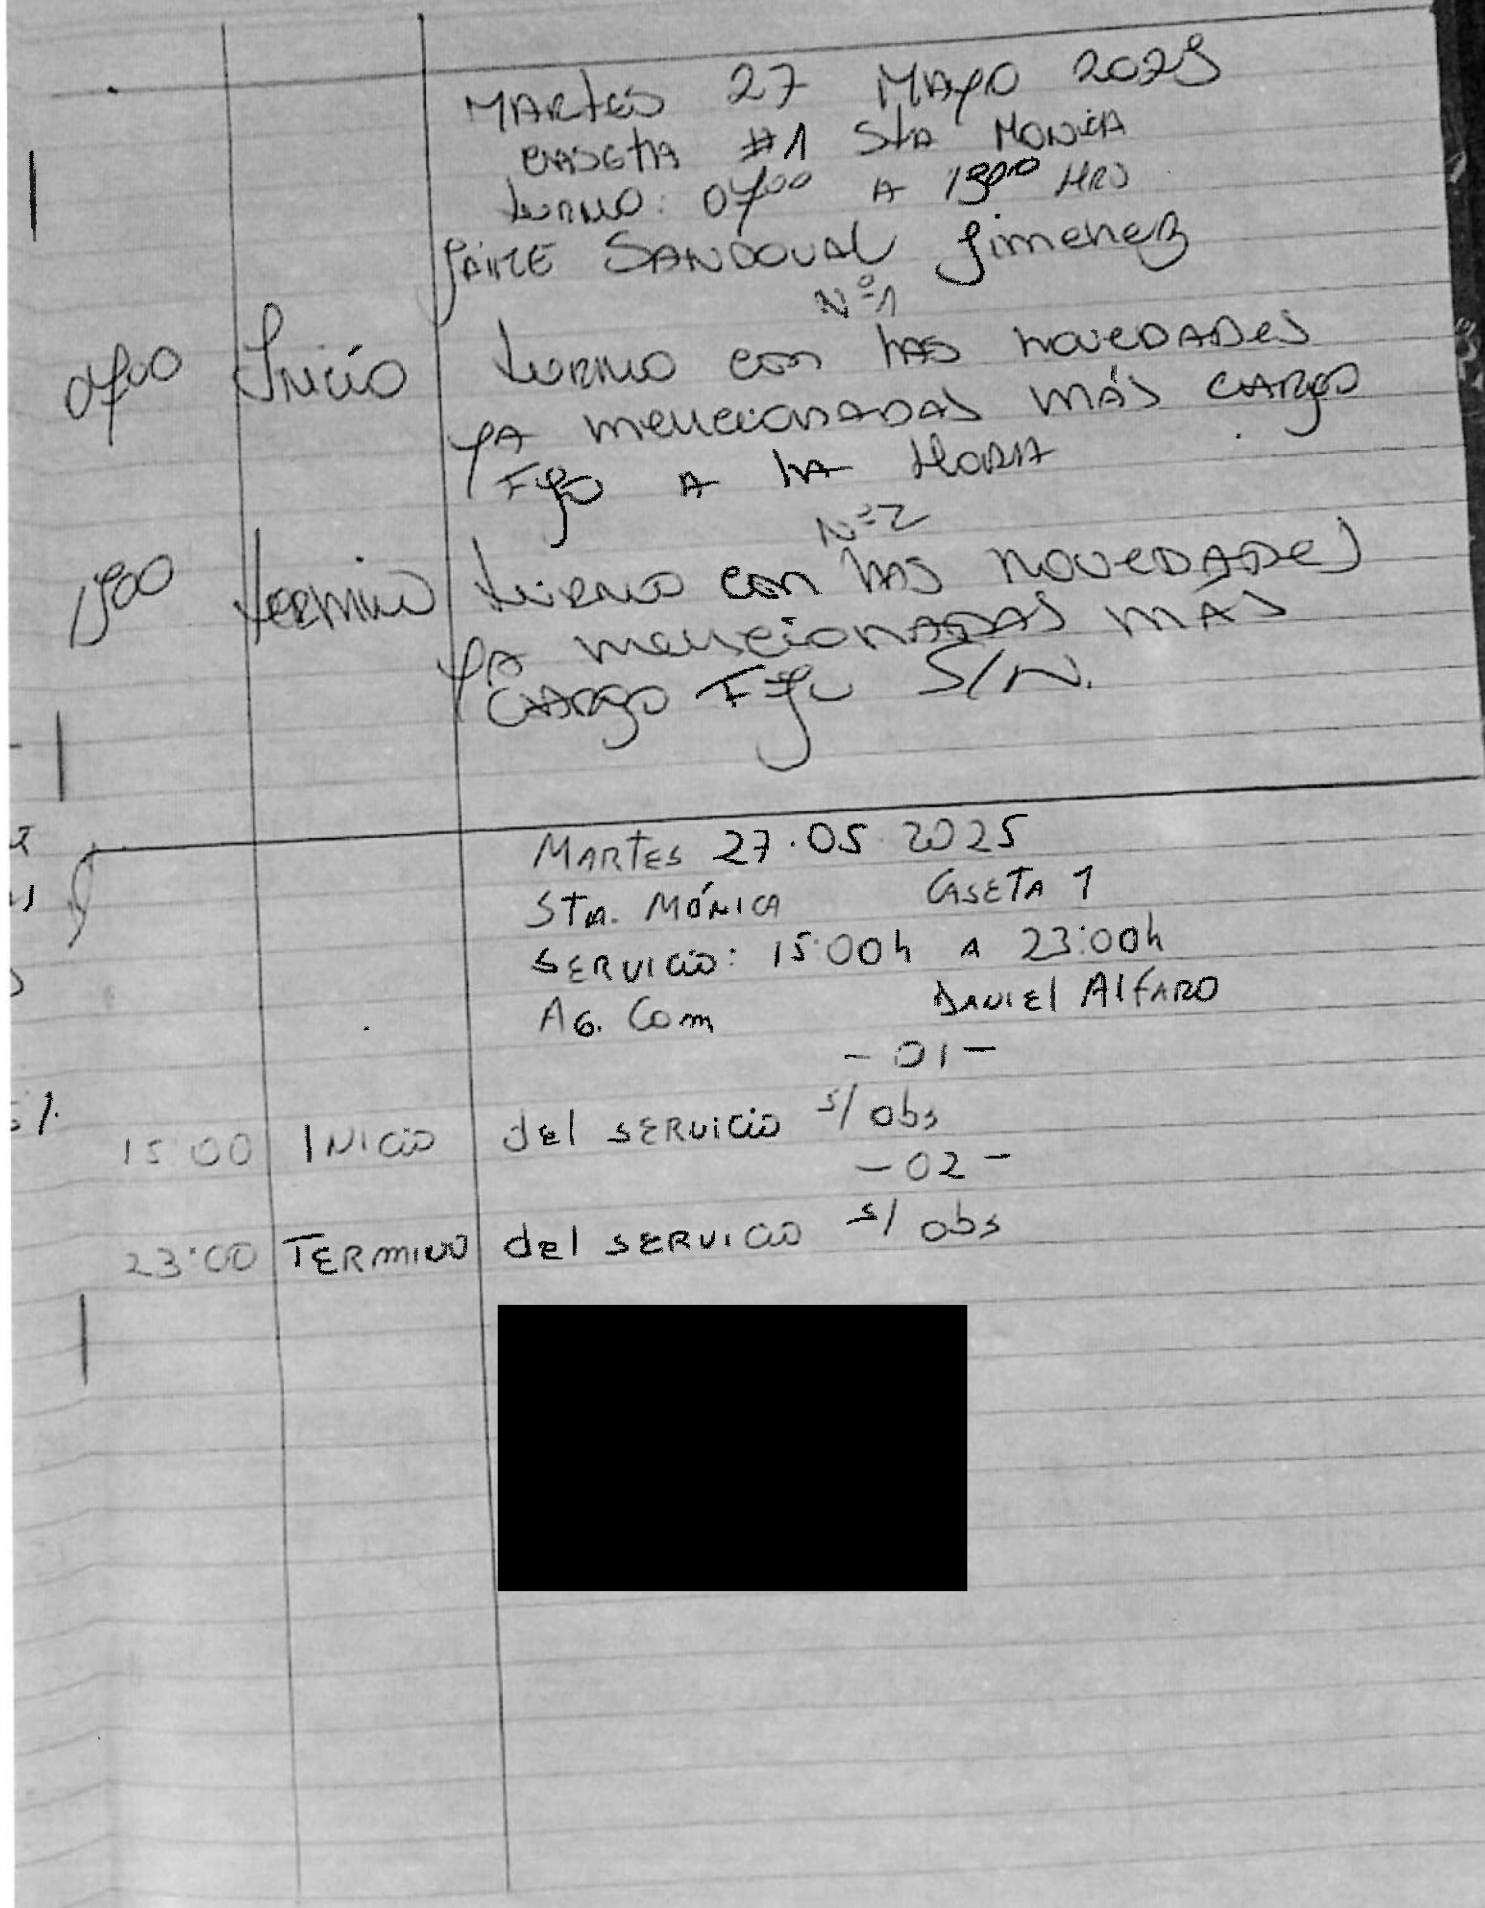 MARTES 27 MAYO 2025
CASETA #1 STA MONICA
TURNO: 0700 A 1500 HRS
JAIME SANDOVAL Jimenez
Nº1
0700 Inicio turno con las novedades
ya mencionadas más cargo
Fijo a la Hora
Nº2
1500 termino turno con las novedades
ya mencionadas más
cargo Fijo S/N.
MARTES 27.05.2025
STA. MÓNICA CASETA 1
SERVICIO: 15:00h A 23:00h
AG. Com DANIEL AlFARO
-01-
15:00 INICIO del SERVICIO s/obs
-02-
23:00 TERMINO del SERVICIO s/obs